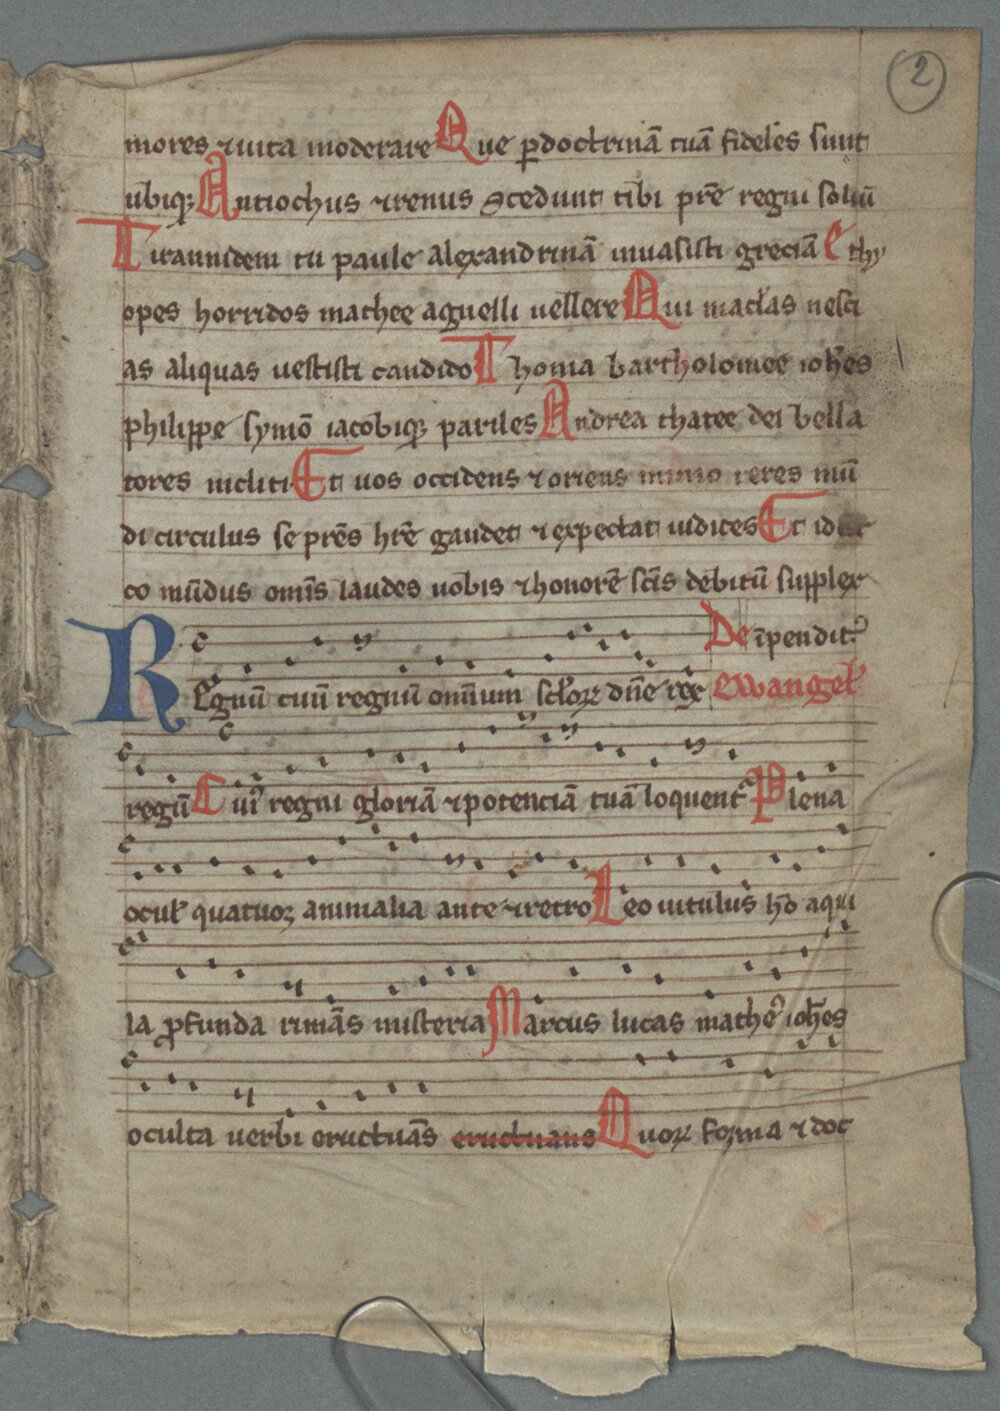 2
mores ⁊ uita moderare Que ꝑ doctrinā tuā fideles sunt
ubiqꝫ Antiochus ⁊ renus ꝯcedunt tibi pr̄e regni soliū
Tirannidem tu paule alexandrinā inuasisti greciā Ethy
opes horridos mathee agnelli uellere Qui mac̄las nesci
as aliquas uestisti candido Thoma bartholomee ioh̄es
philippe symō iacobiqꝫ pariles Andrea thatee dei bella
tores incliti Et uos occidens ⁊ oriens immo teres mū
di circulus se pr̄es hr̄e gaudet ⁊ expectat iudices Et id
co mūdus omīs laudes uobis ⁊ honorē sc̄is debitū supplex
De īpendit᷑
Regnū tuū regnū omnium sc̄loꝝ dn̄e rex ewangeł
regū Cui᷑ regni gloriā ⁊ potenciā tuā loquent᷑ Plena
oculꝭ quatuoꝝ animalia ante ⁊ retro Leo uitulus hō aqui
la ꝓfunda rimās misteria Marcus lucas mathe᷑ ioh̄es
oculta uerbi eructuās eructuans Quoꝝ forma ⁊ doc